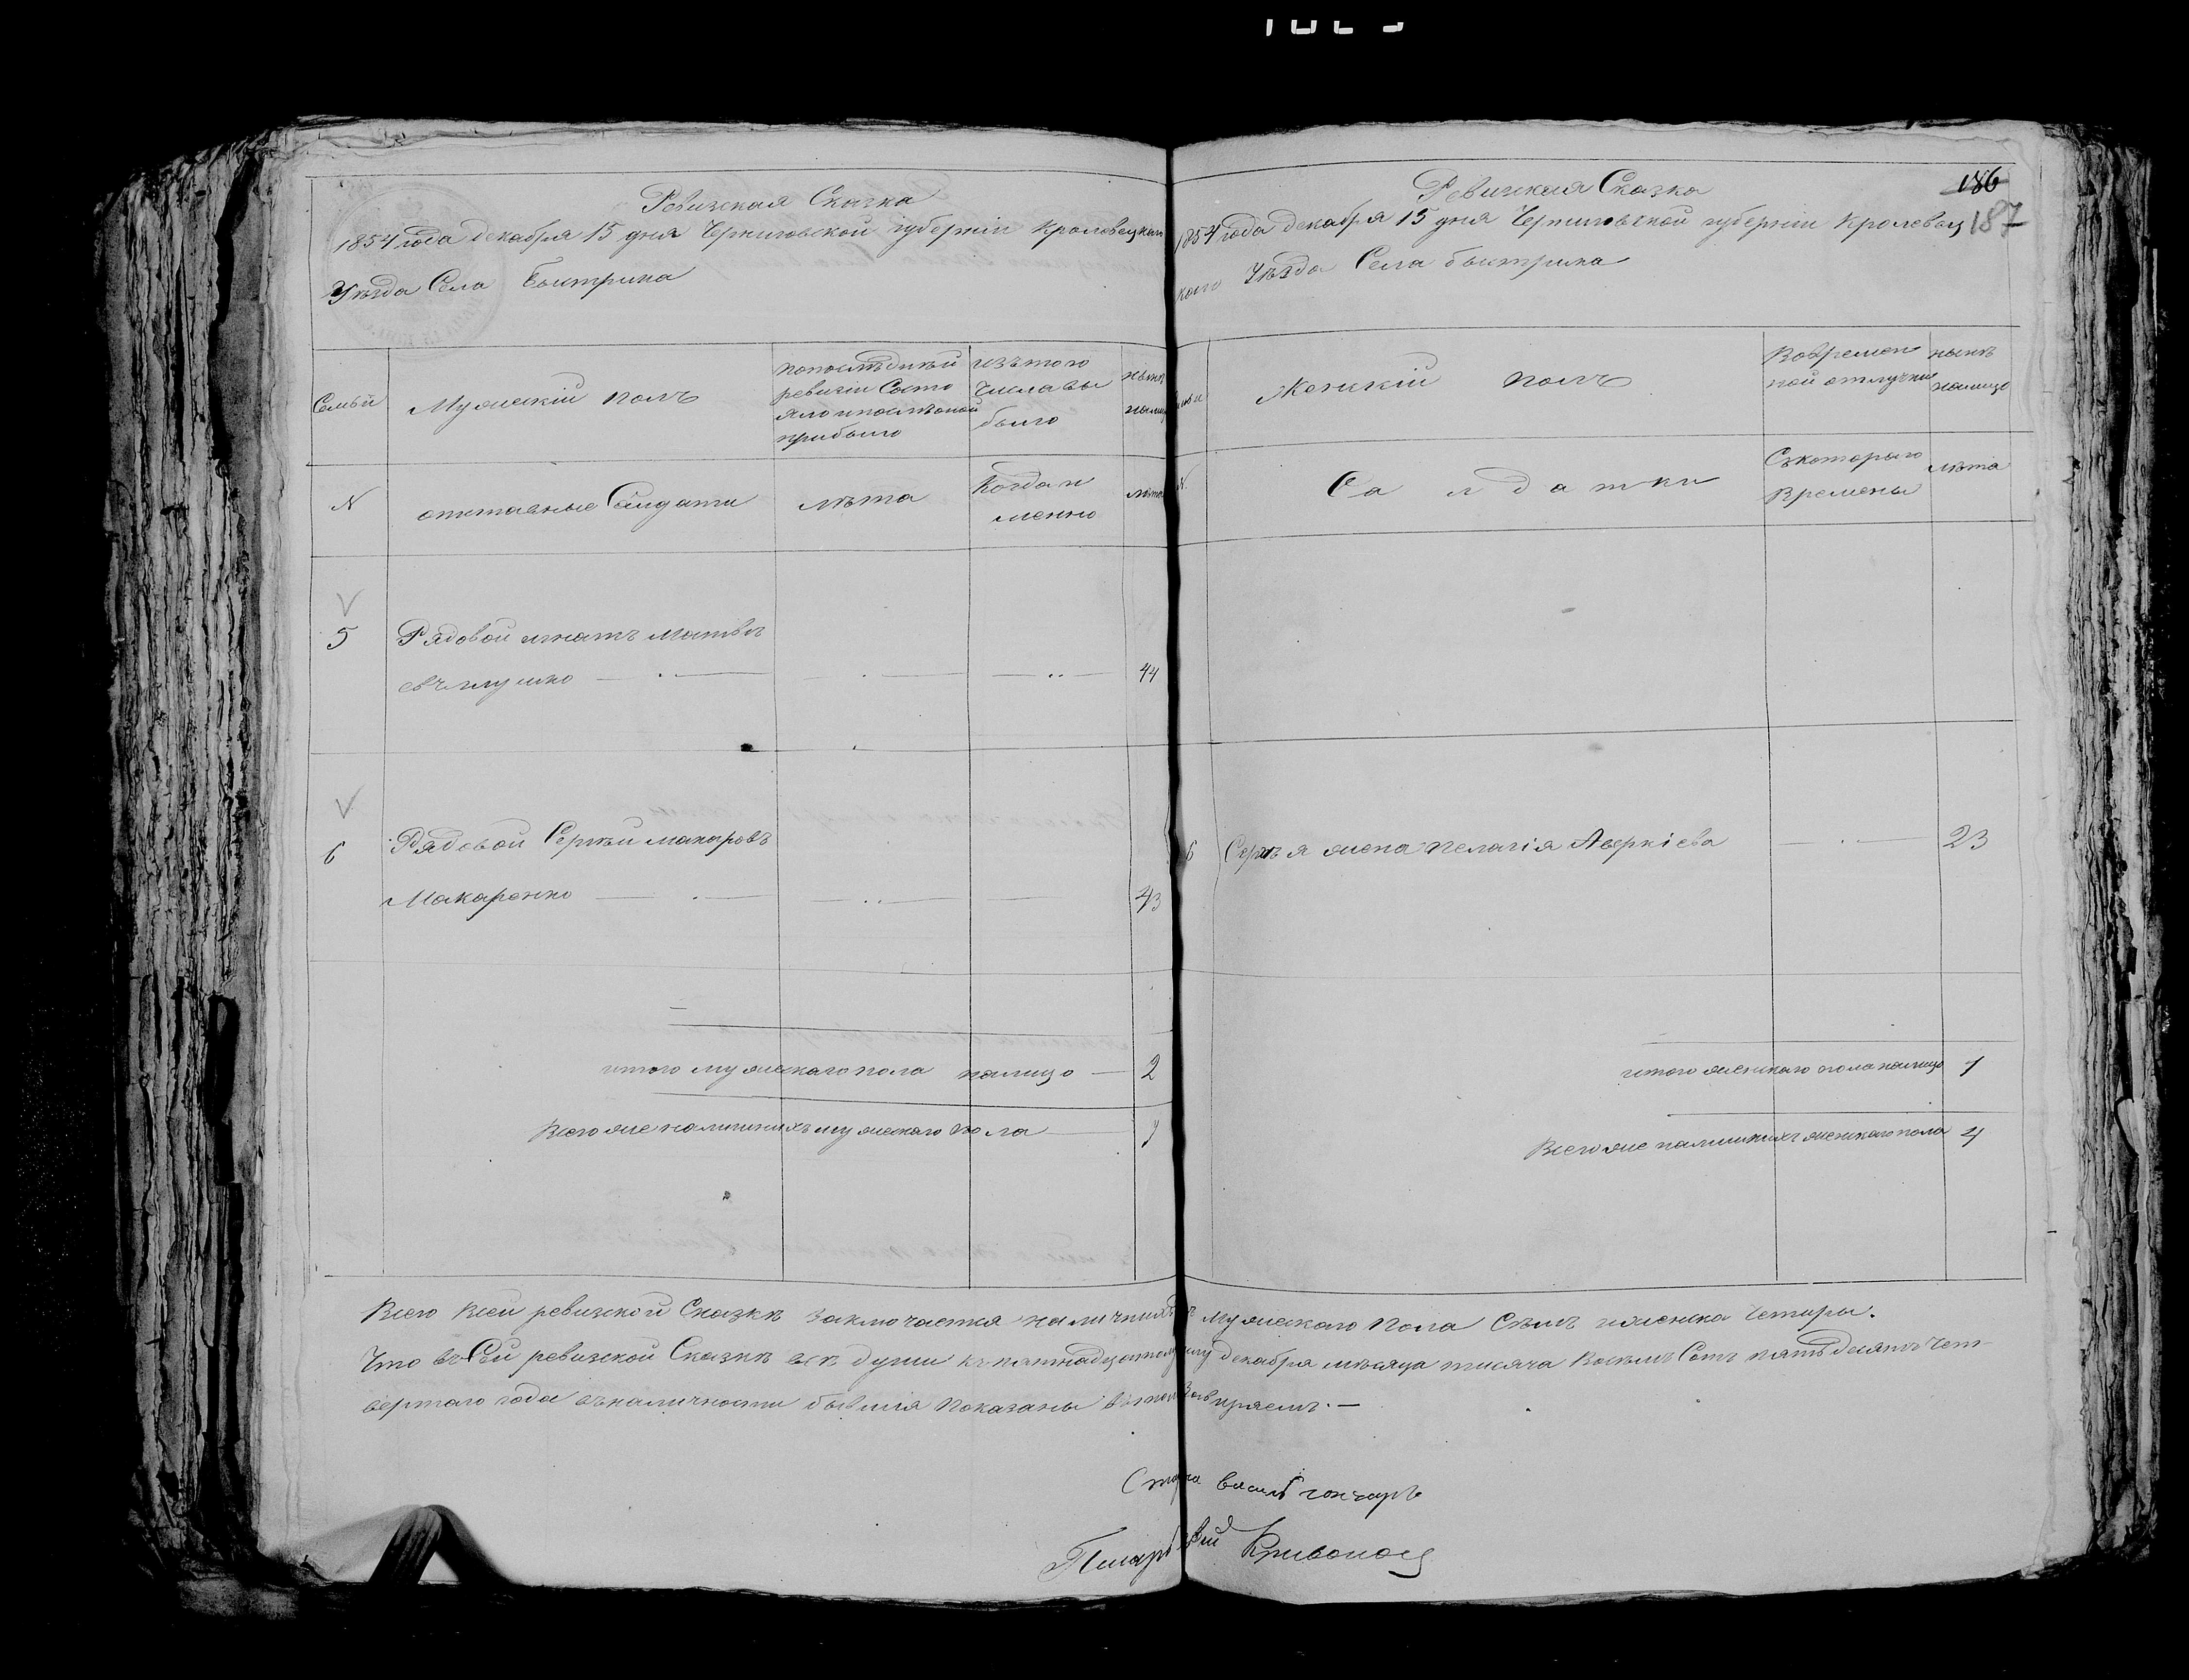 Ревизская Сказка
1854 года декабря 15 дня Черниговской губернiи Кролевецкаго
Уѣзда Села Быстрика
Семьи
Мужескiй полъ
попослѣдней
ревизiи Состо
яло ипослѣоной
прибыло
изътого
Числа вы
было
нынѣ
налицо
N
отставные Салдати
лѣта
Когда и
менно
лѣта
5 Рядовой игнатъ матвѣ
евъ
44
6 Рядовой Сергѣй макаровъ
Макаренко
43
итого мужескаго пола налицо 2
Всего же наличнихъ мужескаго пола 7
Ревизкая Сказка
186
187
1854 года декабря 15 дня Черниговской губернiи Кролевец
кого Уѣзда Села быстрика
Женскiй полъ
Вовремен
ной отлучки
нынѣ
налицо
N.
Салдатки
Скоторого
Времены
лѣта
6 Сергѣя жена пелагiя Аверкiева 23
итого женскаго пола налицо 1
Всего же наличнихъ женскаго пола 4
Всего Всей ревизкой Сказкѣ заключается наличнихъ мужескаго пола Сѣмъ иженска Четыры.
Что въ Сей ревизской Сказкѣ всѣ души къ пятнадцатому числу декабря мѣсяца тисяча Восѣмъ Сотъ пятьдесятъ Чет
вертаго года въналичности бывшiя показаны втомъ завѣряемъ. —
василь гончаръ
Писарь Кривонос